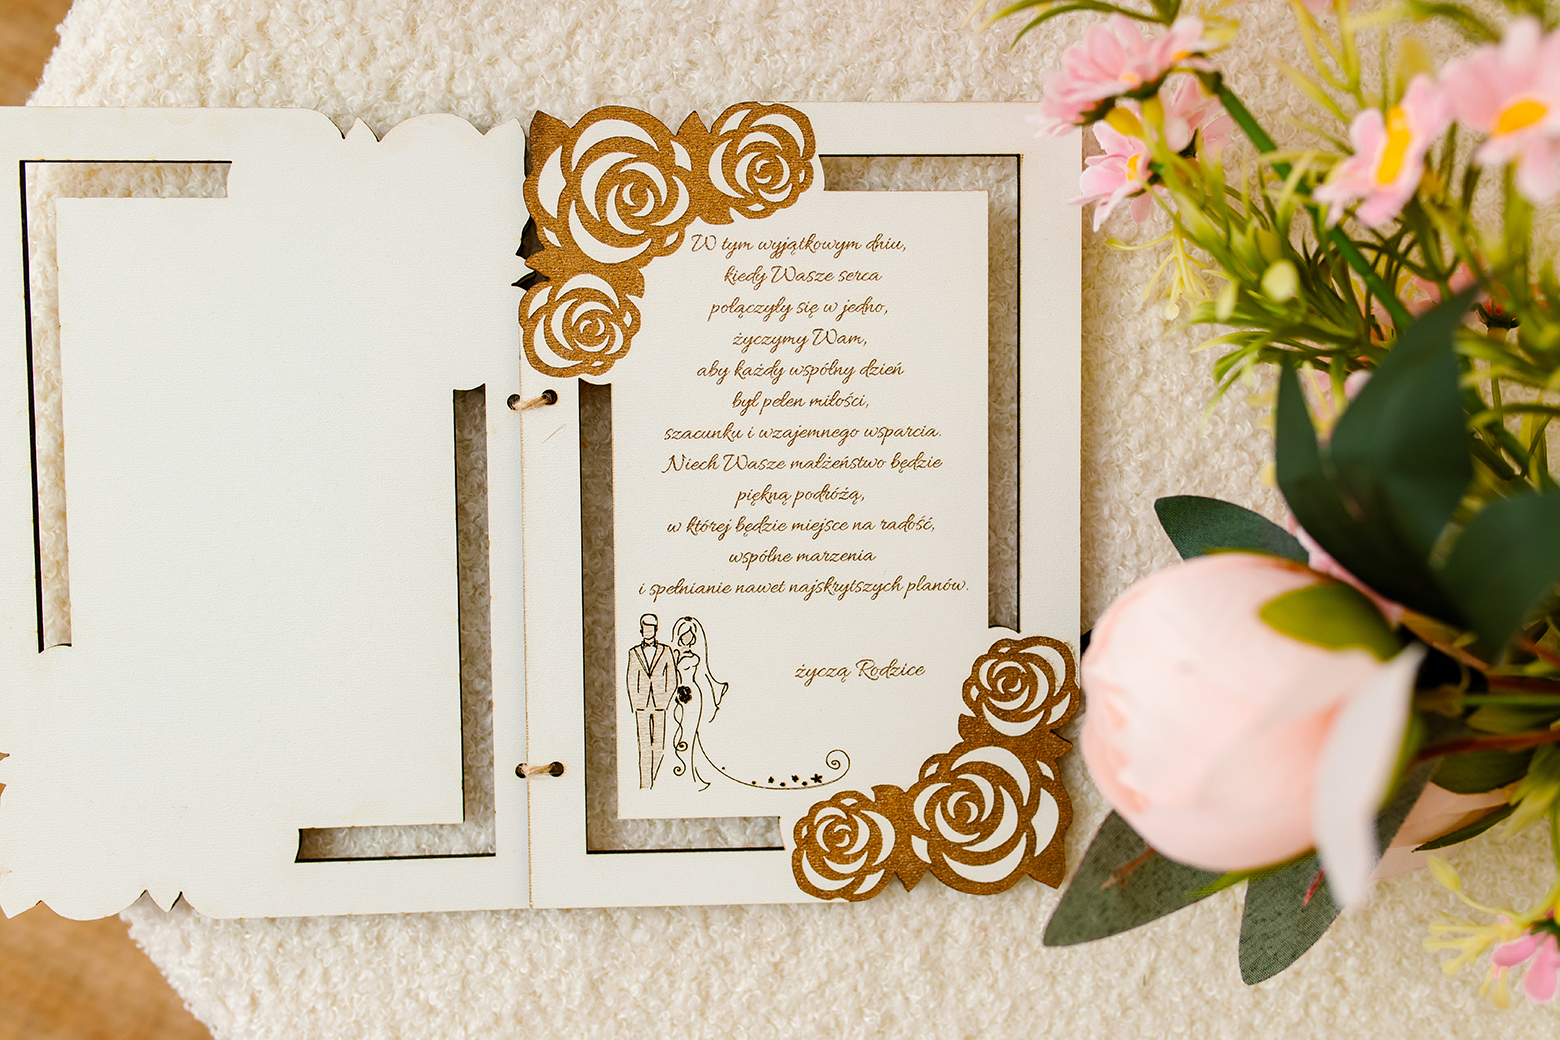 W tym wyjątkowym dniu,
kiedy Wasze serca
połączyły się w jedno,
życzymy Wam,
aby każdy wspólny dzień
był pełen miłości,
szacunku i wzajemnego wsparcia.
Niech Wasze małżeństwo będzie
piękną podróżą,
w której będzie miejsce na radość,
wspólne marzenia
i spełnianie nawet najskrytszych planów.
życzą Rodzice